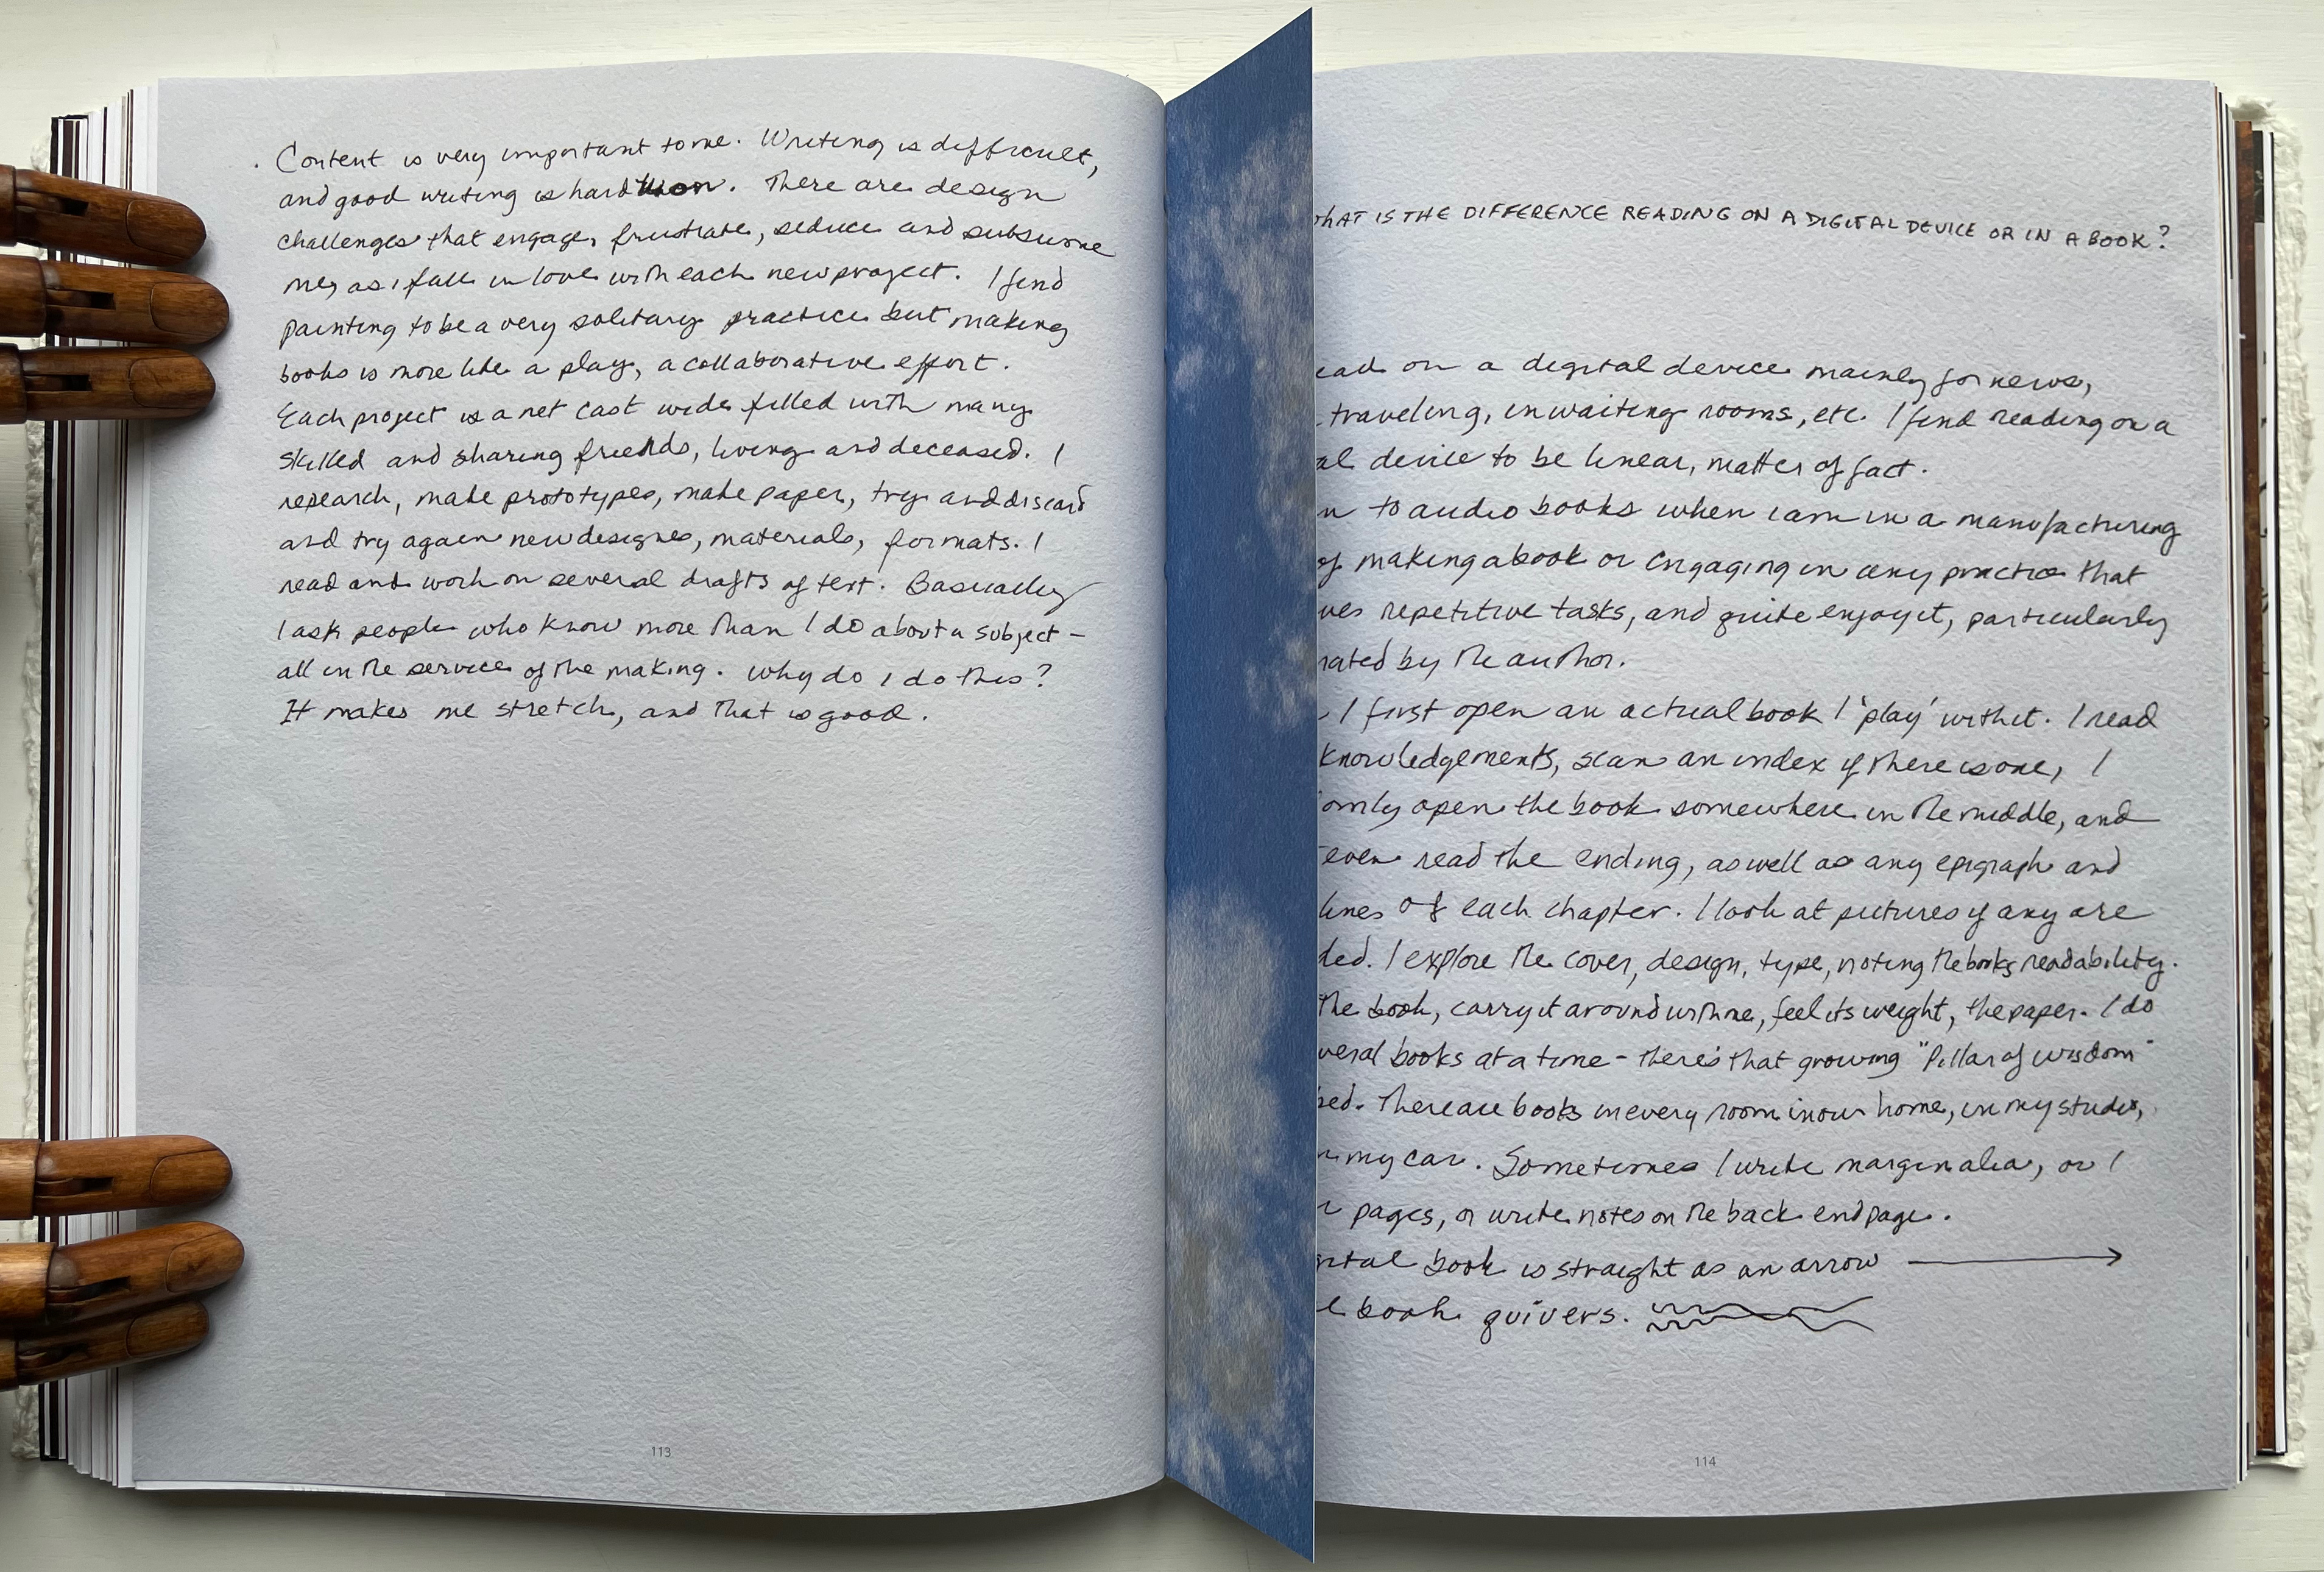 . Content is very important to me. Writing is difficult,
and good writing is hard won. There are design
challenges that engage, frustrate, seduce and subsume
me, as i fall in love with each new project. I find
painting to be a very solitary practice but making
books is more like a play, a collaborative effort.
Each project is a net cast wide filled with many
skilled and sharing friends, living and deceased. I
research, make prototypes, make paper, try and discard
and try again new designs, materials, formats. I
read and work on several drafts of text. Basically
I ask people who know more than I do about a subject –
all in the service of the making. Why do i do this?
It makes me stretch, and that is good.
113
hAT IS THE DIFFERENCE READING ON A DIGITAL DEVICE OR IN A BOOK?
ead on a digital device mainly for news,
traveling, in waiting rooms, etc. I find reading on a
al device to be linear, matter of fact.
n to audio books when i am in a manufacturing
of making a book or engaging in any practice that
ves repetitive tasks, and quite enjoy it, particularly
rated by the author.
I first open an actual book I 'play' with it. I read
knowledgements, scan an index if there is one, I
omly open the book somewhere in the middle, and
even read the ending, as well as any epigraph and
lines of each chapter. I look at pictures if any are
ded. I explore the cover, design, type, noting the books readability.
the book, carry it around with me, feel its weight, the paper. I do
veral books at a time – there's that growing "Pillar of wisdom"
bed. There are books in every room in our home, in my studio,
n my car. Sometimes I write marginalia, or I
pages, or write notes on the back endpage.
gital book is straight as an arrow
l book quivers.
114